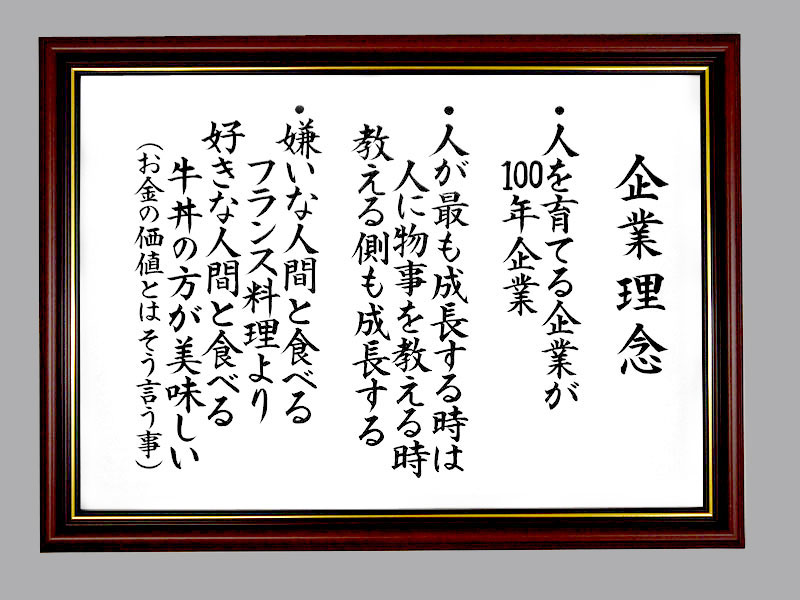 企業理念
・人を育てる企業が
100年企業
・人が最も成長する時は
人に物事を教える時
教える側も成長する
・嫌いな人間と食べる
フランス料理より
好きな人間と食べる
牛丼の方が美味しい
（お金の価値とはそう言う事）